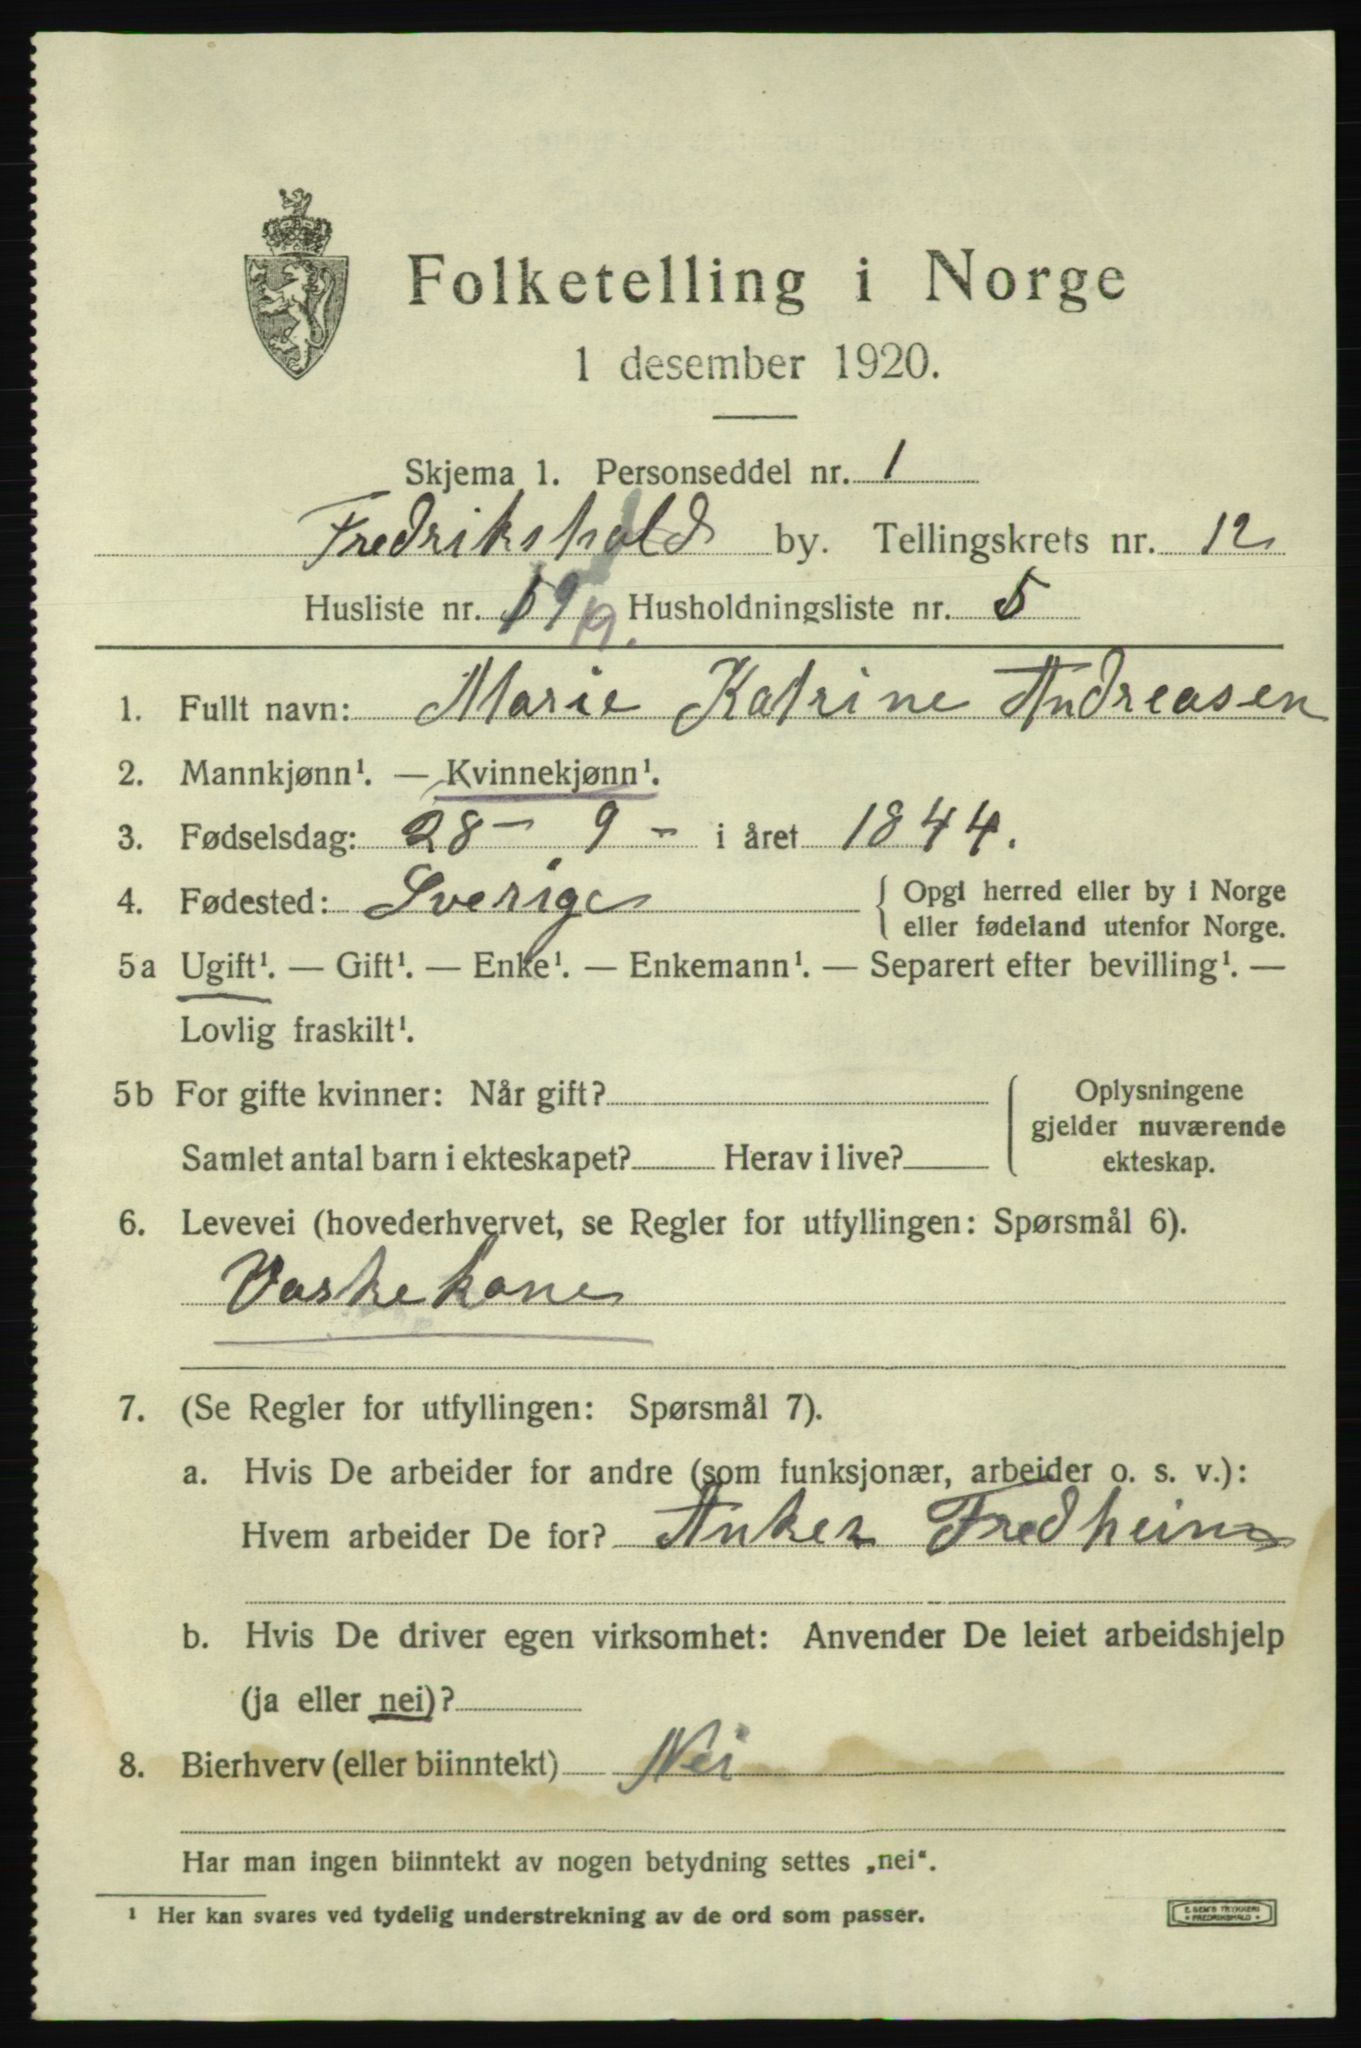 Folketelling i Norge
1 desember 1920.
Skjema 1. Personseddel nr. 1
Fredrikshald by. Tellingskrets nr. 12
Husliste nr. 59 19. Husholdningsliste nr. 5
1. Fullt navn: Marie Katrine Andreasen
2. Mannkjønn¹. — Kvinnekjønn¹.
3. Fødselsdag: 28 - 9 - i året 1844.
4. Fødested: Sverige { Opgi herred eller by i Norge
eller fødeland utenfor Norge.
5a Ugift¹. — Gift¹. — Enke¹. — Enkemann¹. — Separert efter bevilling¹. —
Lovlig fraskilt¹.
5b For gifte kvinner: Når gift? { Oplysningene
gjelder nuværende
Samlet antal barn i ekteskapet? Herav i live? ekteskap.
6. Levevei (hovederhvervet, se Regler for utfyllingen: Spørsmål 6).
Vaskekone
7. (Se Regler for utfyllingen: Spørsmål 7).
a. Hvis De arbeider for andre (som funksjonær, arbeider o. s. v.):
Hvem arbeider De for? Anker Fredheim
b. Hvis De driver egen virksomhet: Anvender De leiet arbeidshjelp
(ja eller nei)?
8. Bierhverv (eller biinntekt) Nei
Har man ingen biinntekt av nogen betydning settes „nei“.
¹ Her kan svares ved tydelig understrekning av de ord som passer.
E. SEM'S TRYKKERI
• FREDRIKSHALD •